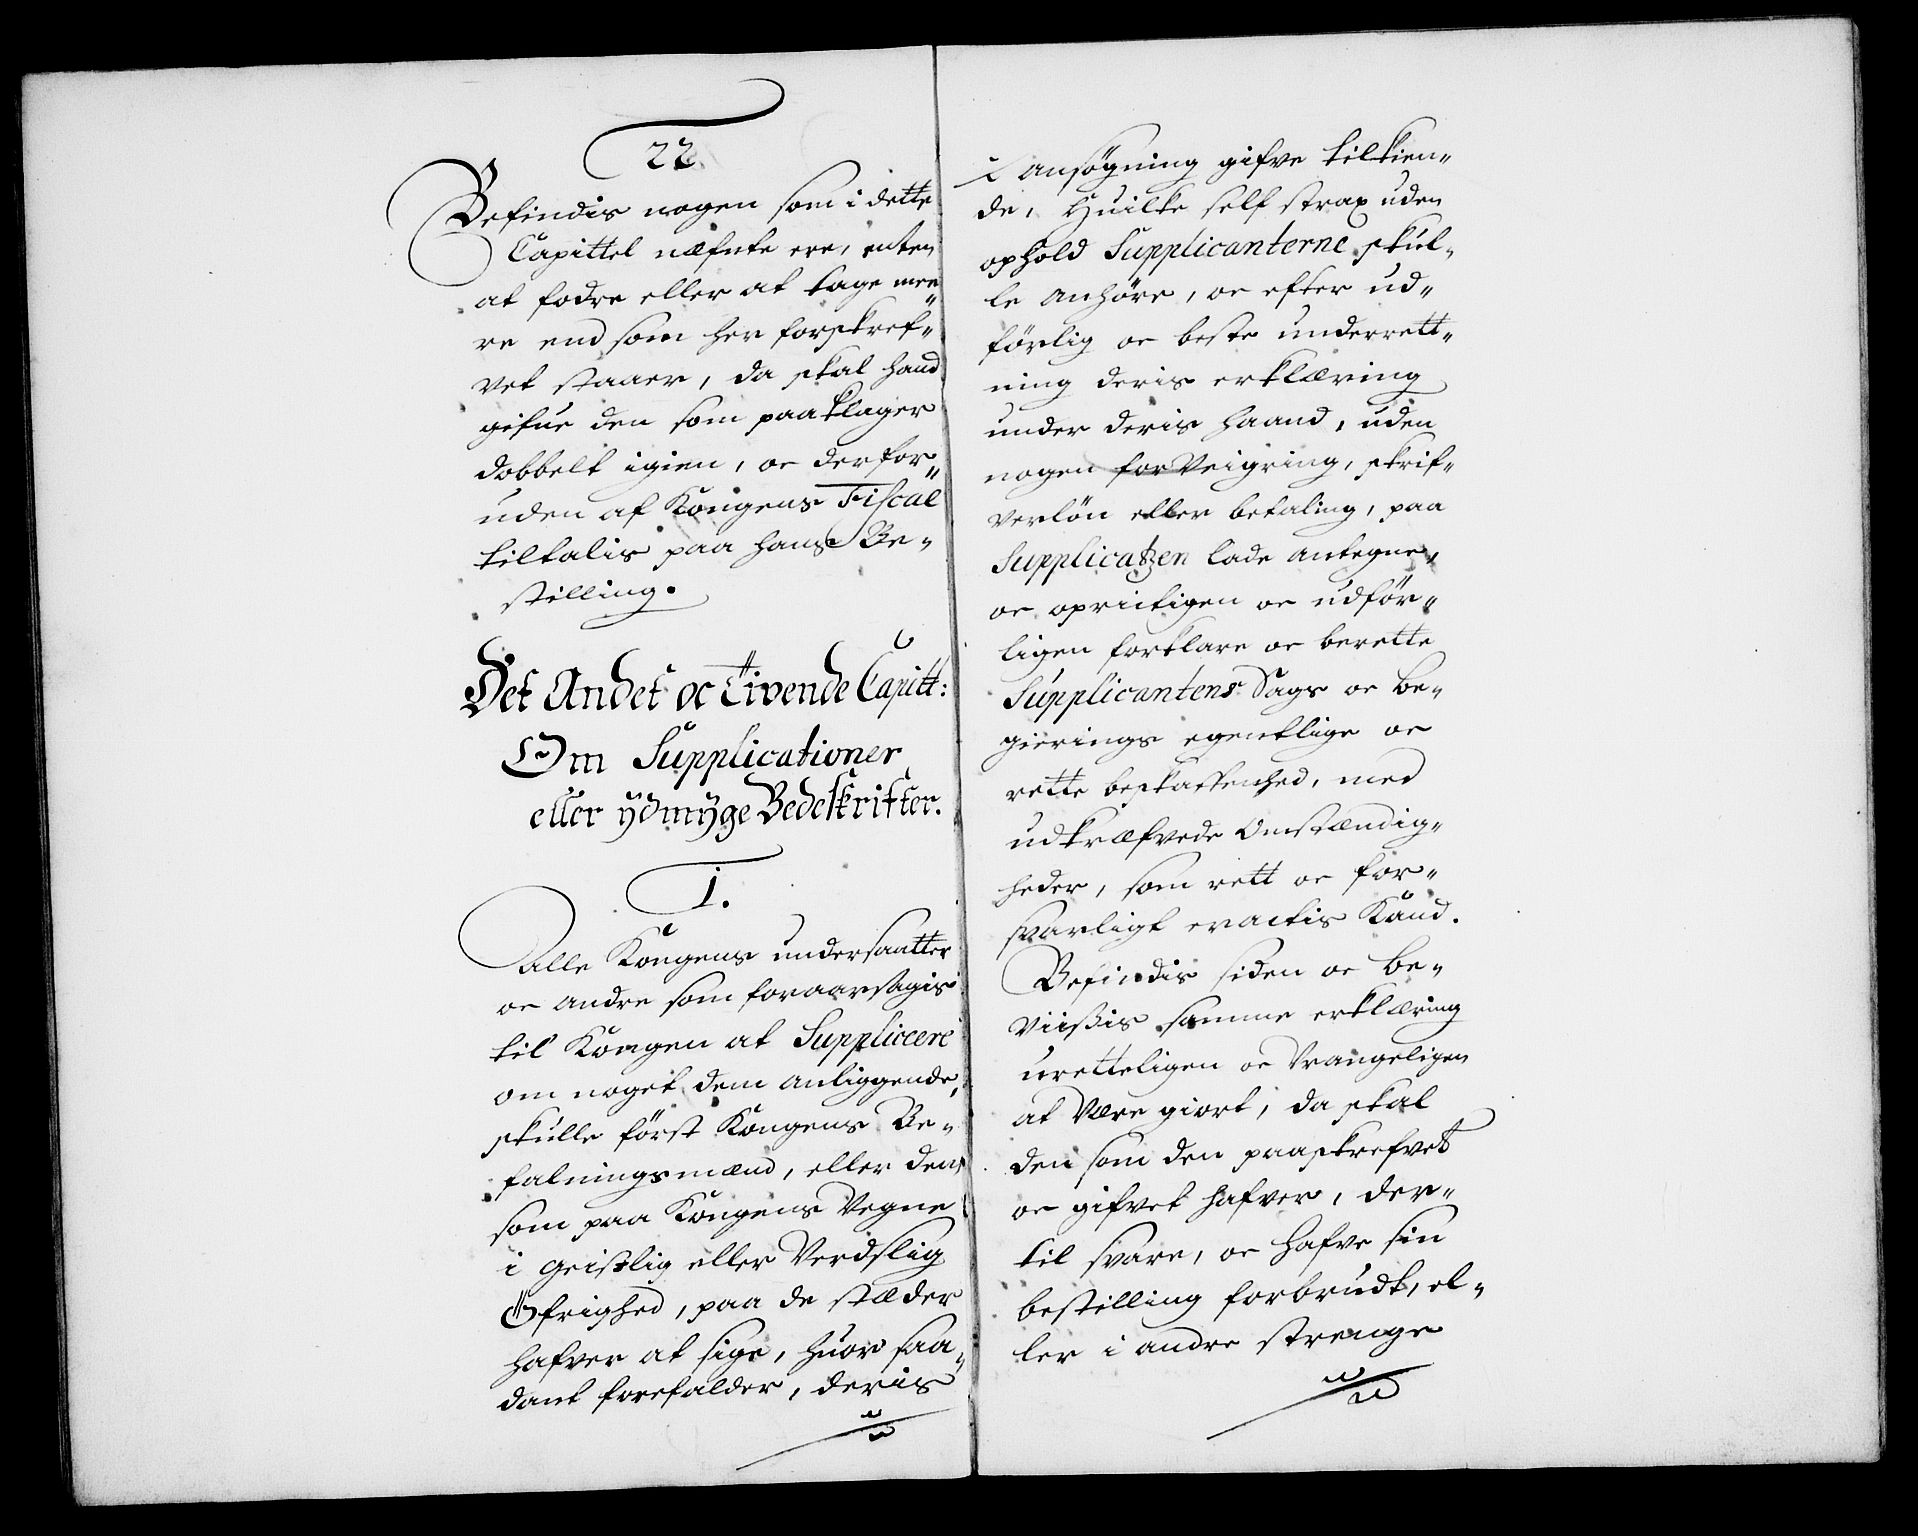 22.
Befindis nogen som i dette
Capittel næfnte ere, enten
at fodre eller at tage mee„
re end som her forskref„
vet staaer, da skal hand
gifue den som paaklager
dobbelt igien, oc derfor„
uden af Kongens Fiscal
tiltalis paa hans Be„
stilling.
Det Andet oc Tivende Capitt:
Om Supplicationer
eller ÿdmÿge Bedeskrifter.
1.
Alle Kongens undersaatter
oc andre som foraarsagis
til Kongen at Supplicere
om noget dem anliggende,
skulle först Kongens Be„
falningsmænd, eller den
som paa Kongens Vegne
i Geistlig eller Verdslig
Öfrighed, paa de stæder
hafver at sige, huor saa„
dant forefalder, deris
ansögning gifve tilkien„
de, Huilke self strax uden
ophold Supplicanterne skul„
le anhöre, oc efter ud„
förlig oc beste underrett„
ning deris erklæring
under deris haand, uden
nogen forveigring, skrif„
verlön eller betaling, paa
Supplicatzen lade antegne,
oc oprictigen oc udför„
ligen forklare oc berette
Supplicantens Sags oc be„
gierings egentlige oc
rette beskaffenhed, med
udkræfvede Omstændig„
heder, som rett oc for„
svarligt eractis Kand.
Befindis siden oc be„
viißis samme erklæring
uretteligen oc Vrangeligen
at Være giort, da skal
den som den paaskrefvet
oc gifvet hafver, der„
til svare, oc hafve sin
bestilling forbrudt, el„
ler i andre strenge